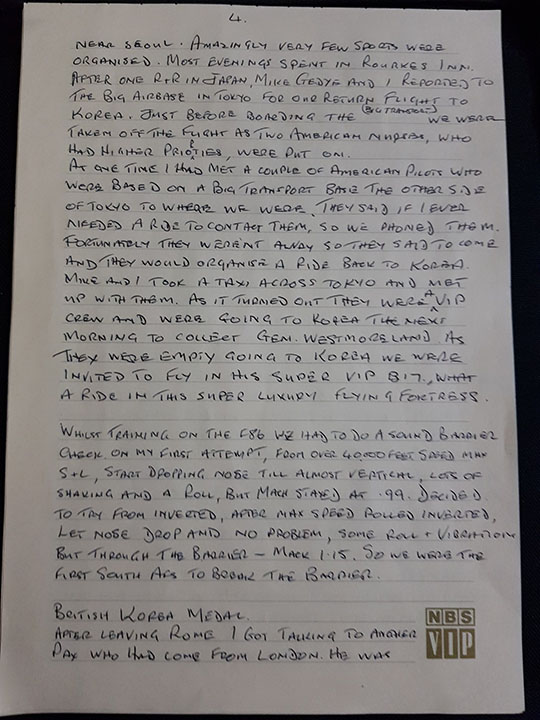 4.
NEAR SEOUL. AMAZINGLY VERY FEW SPORTS WERE
ORGANISED. MOST EVENINGS SPENT IN ROURKES INN.
AFTER ONE R+R IN JAPAN, MIKE GEDYE AND I REPORTED TO
THE BIG AIRBASE IN TOKYO FOR OUR RETURN FLIGHT TO
KOREA. JUST BEFORE BOARDING THE (BIG TRANSPORT) WE WERE
TAKEN OFF THE FLIGHT AS TWO AMERICAN NURSES, WHO
HAD HIGHER PRIORTIES, WERE PUT ON.
AT ONE TIME I HAD MET A COUPLE OF AMERICAN PILOTS WHO
WERE BASED ON A BIG TRANSPORT BASE THE OTHER SIDE
OF TOKYO TO WHERE WE WERE. THEY SAID IF I EVER
NEEDED A RIDE TO CONTACT THEM, SO WE PHONED THEM.
FORTUNATELY THEY WERENT AWAY SO THEY SAID TO COME
AND THEY WOULD ORGANISE A RIDE BACK TO KOREA.
MIKE AND I TOOK A TAXI ACROSS TOKYO AND MET
UP WITH THEM. AS IT TURNED OUT THEY WERE A VIP
CREW AND WERE GOING TO KOREA THE NEXT
MORNING TO COLLECT GEN. WESTMORELAND. AS
THEY WERE EMPTY GOING TO KOREA WE WERE
INVITED TO FLY IN HIS SUPER VIP B17. WHAT
A RIDE IN THIS SUPER LUXURY FLYING FORTRESS.
WHILST TRAINING ON THE F86 WE HAD TO DO A SOUND BARRIER
CHECK. ON MY FIRST ATTEMPT, FROM OVER 40,000 FEET SPEED MAX
S+L, START DROPPING NOSE TILL ALMOST VERTICAL, LOTS OF
SHAKING AND A ROLL, BUT MACH STAYED AT .99. DECIDED
TO TRY FROM INVERTED, AFTER MAX SPEED ROLLED INVERTED,
LET NOSE DROP AND NO PROBLEM, SOME ROLL + VIBRATION
BUT THROUGH THE BARRIER – MACK 1.15. SO WE WERE THE
FIRST SOUTH AFS TO BREAK THE BARRIER.
BRITISH KOREA MEDAL.
AFTER LEAVING ROME I GOT TALKING TO ANOTHER
PAX WHO HAD COME FROM LONDON. HE WAS
NBS
VIP